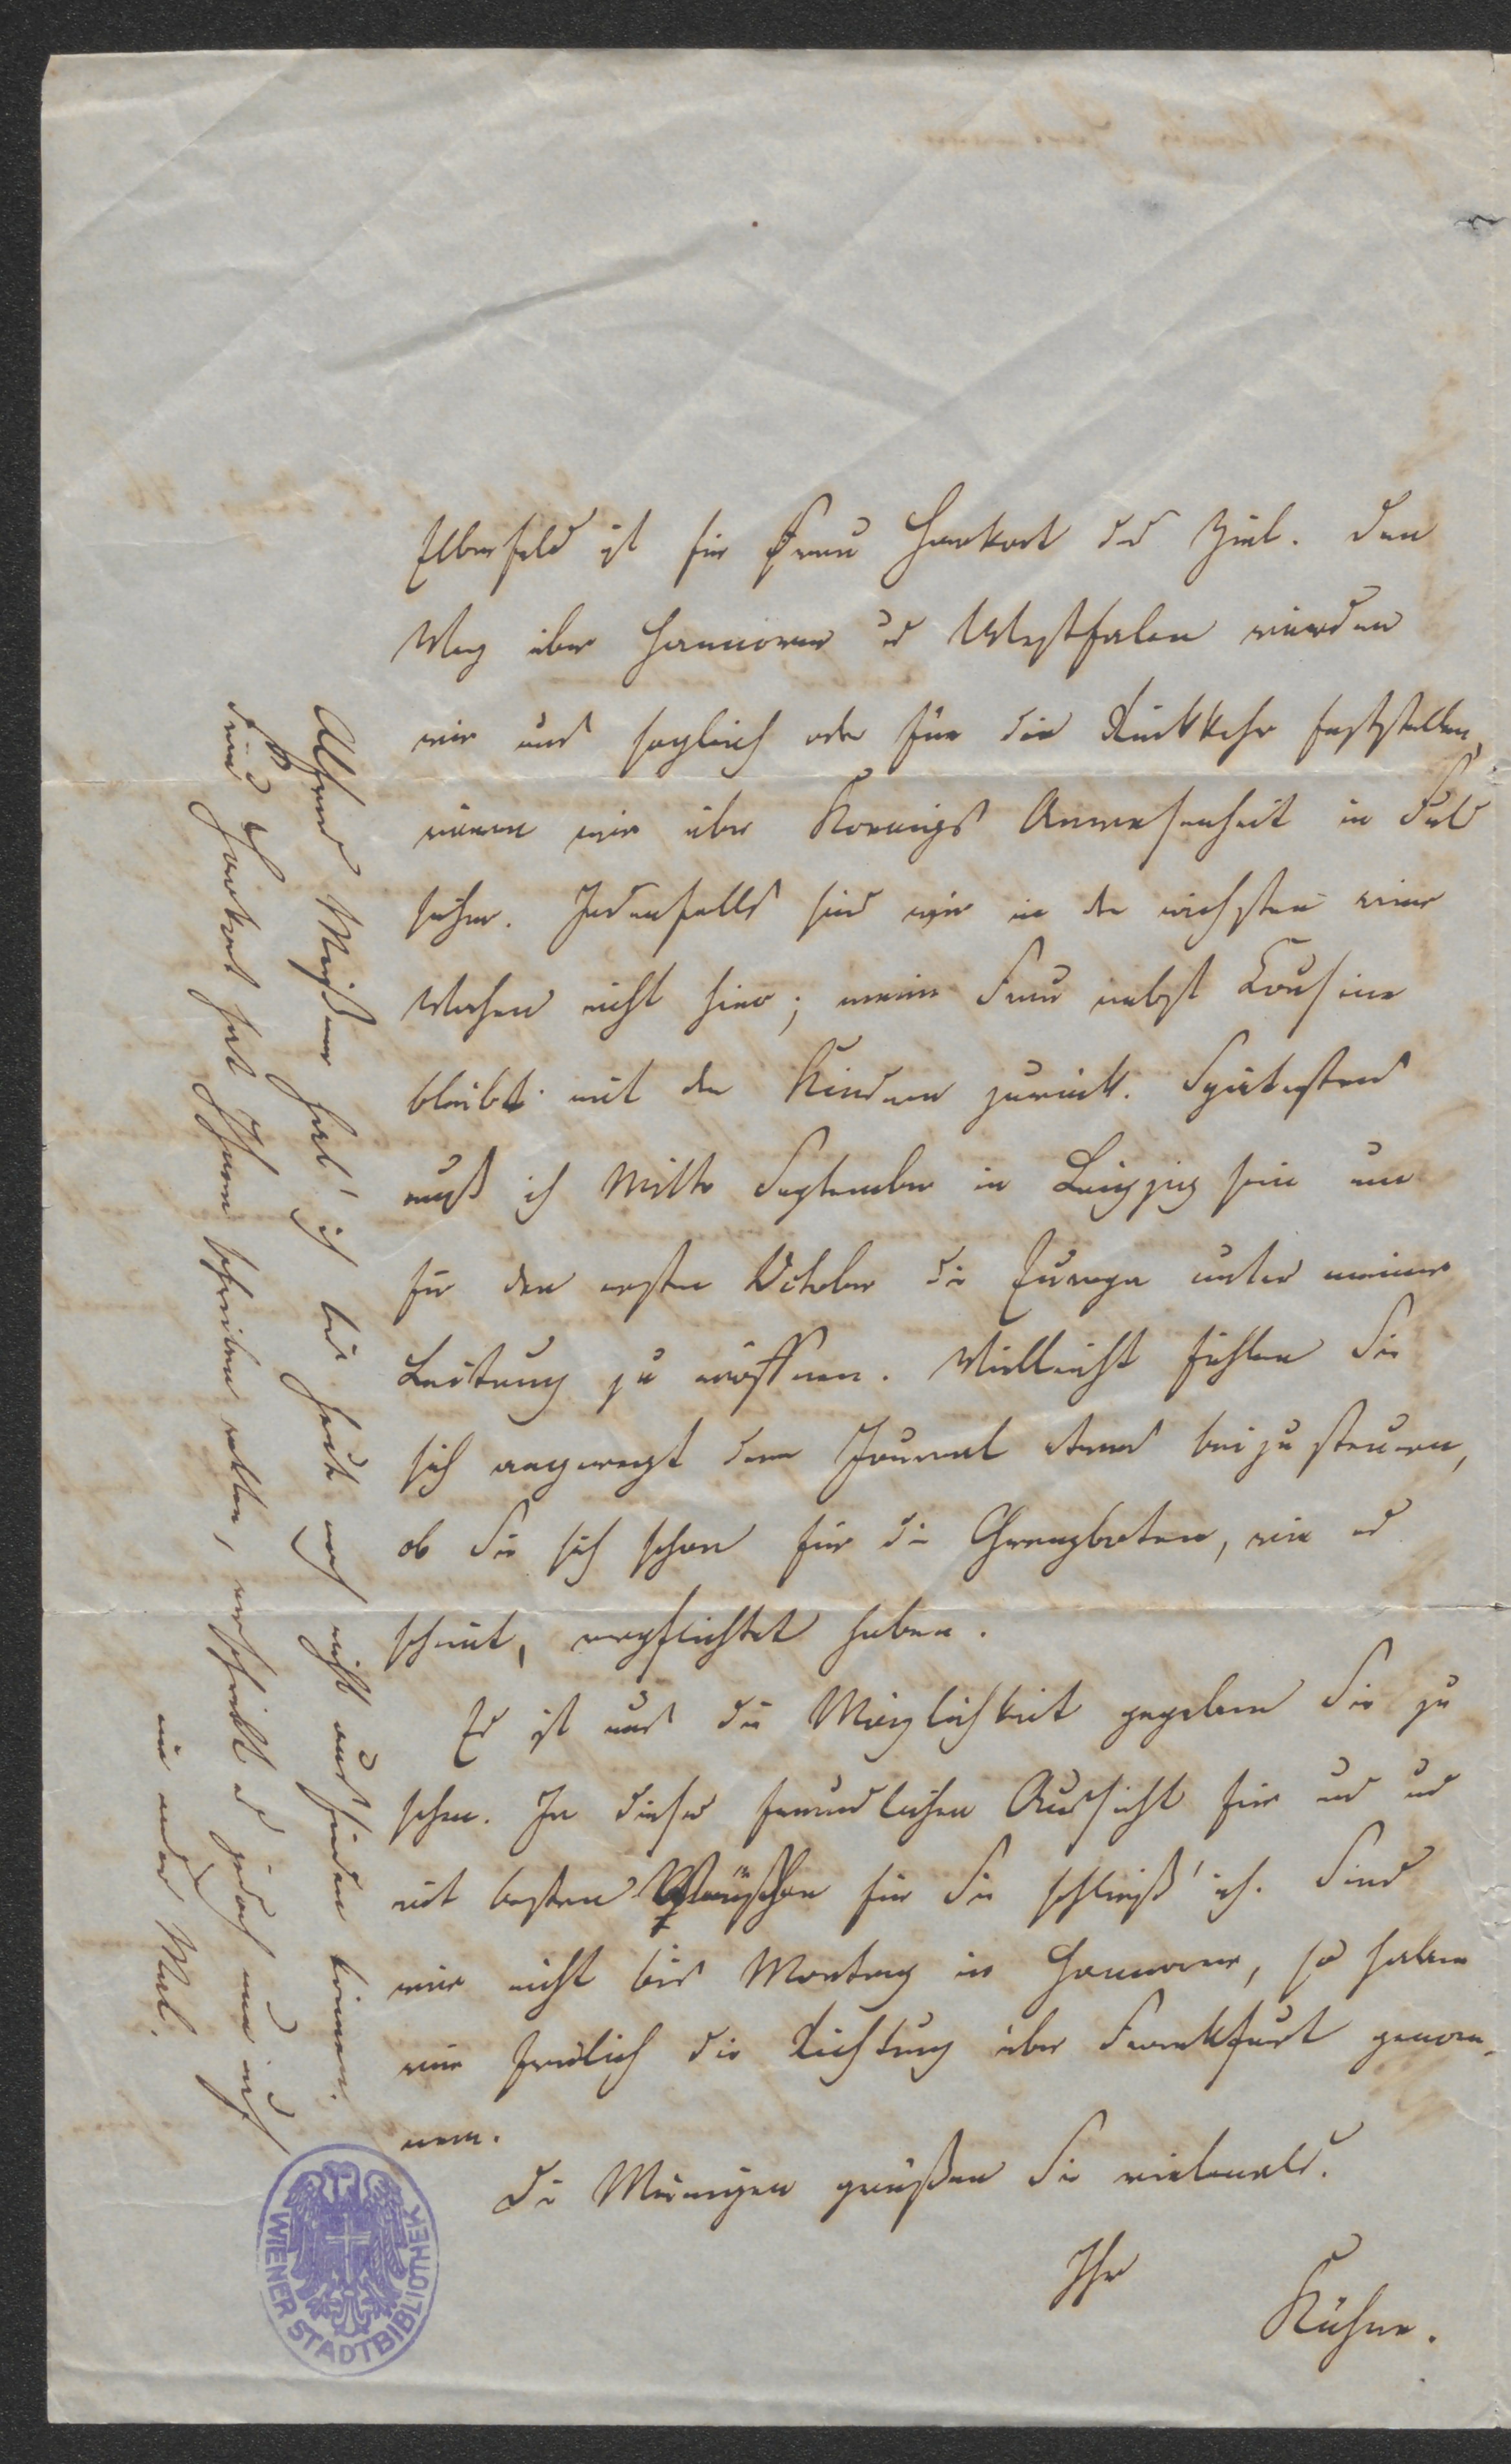 Elberfeld ist für Frau Harkort das Ziel. Den
Weg über Hannover u Westfalen würden
wir nur sogleich oder für die Rückkehr feststellen,
wenn wir über Anwesenheit in
sicher. Jedenfalls sind wir in den nächsten vier
Wochen nicht hier; meine Frau nebst Cousine
bleibt mit den Kindern zurück. Spätestens
muß ich Mitte September in Leipzig sein um
für den ersten October die Europa unter meiner
Leitung zu eröffnen. Vielleicht fühlen Sie
sich angeregt dem Journal etwas beizusteuern,
ob Sie sich schon für die Grenzboten, wie es
scheint, verpflichtet haben.
Es ist uns die Möglichkeit gegeben Sie zu
sehen. In dieser freundlichen Aussicht für uns und
mit besten Wünschen für Sie schließ' ich. Sind
wir nicht bis Montag in Hannover, so haben
wir freilich die Richtung über Frankfurt genom-
men.
Die Meinigen grüßen Sie vielmals.
Ihr
Kühne.
Alfred Meißner hab' ich bis heute noch nicht auffinden können.
Frau Harkort hat Ihnen schreiben wollen, verschiebt es jedoch nun auf
ein ander Mal.
WIENER STADTBIBLIOTHEK